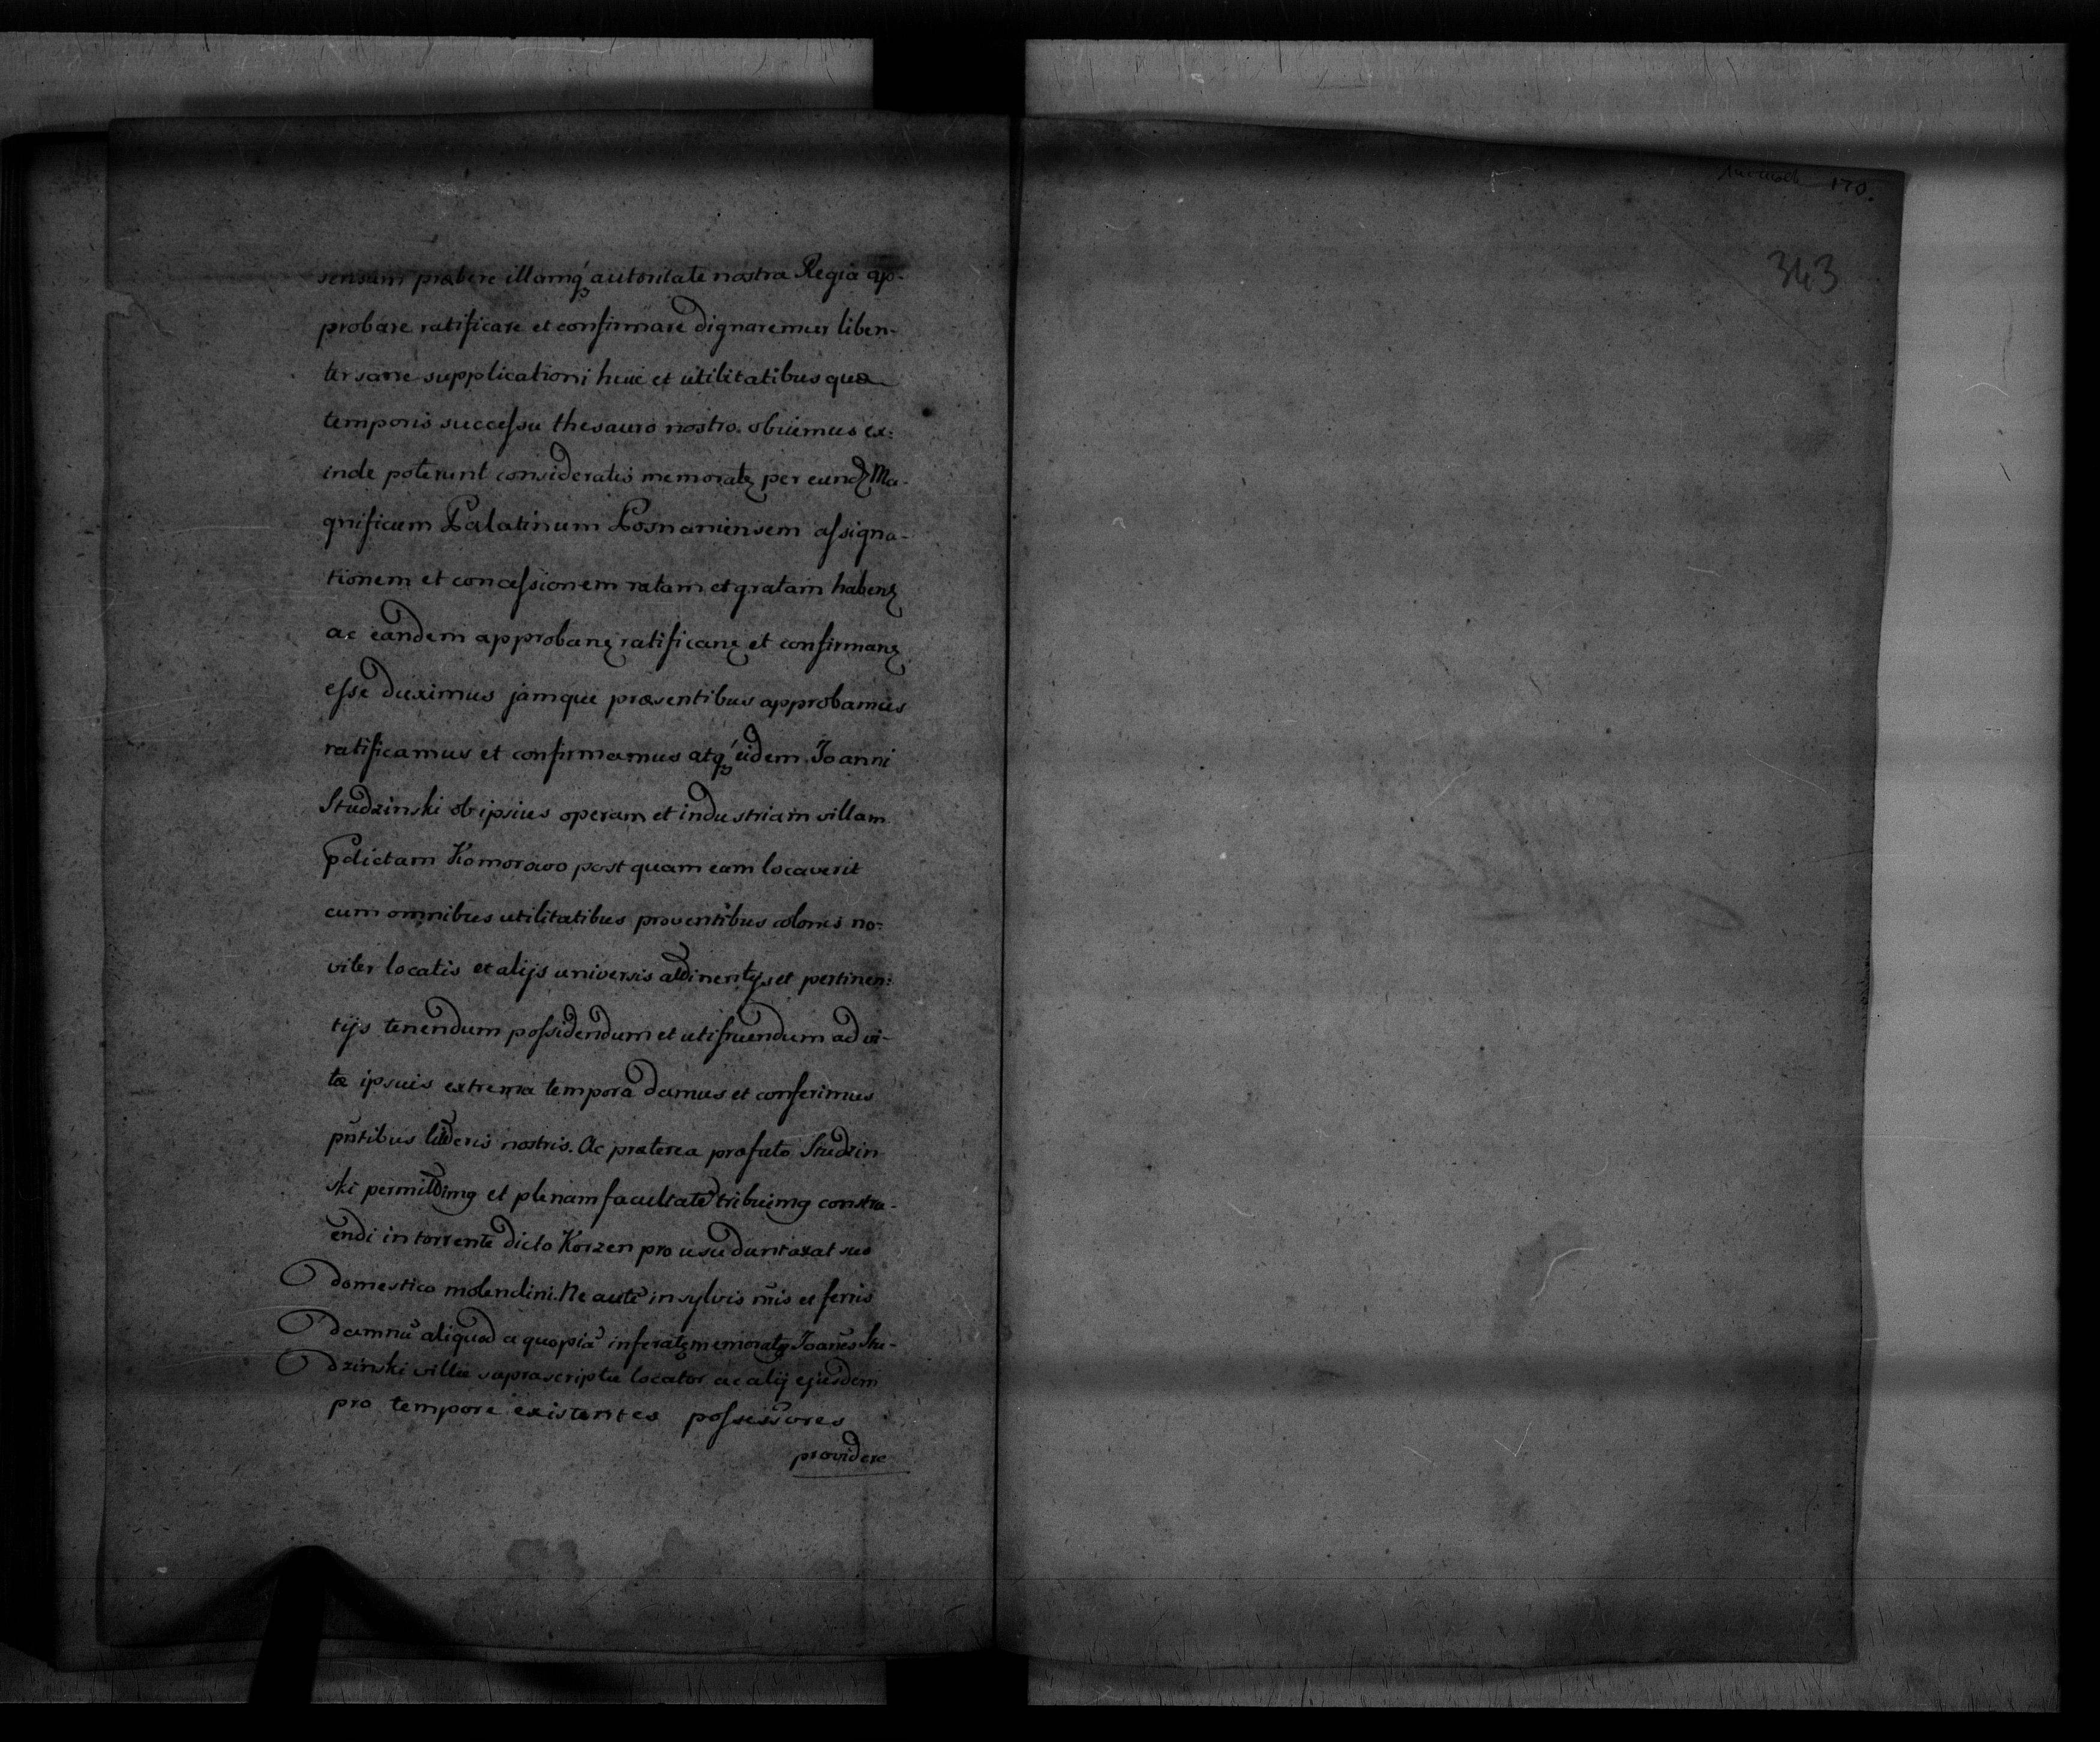 sensum præbere illamq́ autoritate nostra Regia ap-
probare ratificare et confirmare dignaremur liben-
ter sane supplicationi huic et utilitatibus quæ
temporis successu thesauro nostro obuemus ex:
inde poterunt consideratis memoratę per eundę Ma-
gnificum Palatinum Posnaniensem assigna-
tionem et concessionem ratam et gratam habenę
ac eandem approbanę ratificanę et confirmanę
esse duximus jamque præsentibus approbamus
ratificamus et confirmamus atq́ eidem Joanni
Studzinski ob ipsius operam et industriam villam
pdictam Komorowo post quam eam locaverit
cum omnibus utilitatibus proventibus colonis no:
viter locatis et alijs universis attinentijs et pertinen:
tijs tenendum possidendum et utifruendum ad vi-
tæ ipsuis extrema tempora damus et conferimus
pn̄tibus litteris nostris. Ac præterea præfato Studzin
ski permittimq et plenam facultatē tribuimq constru-
endi in torrente dicto Korzen pro usu duntaxat suo
domestico molendini. Ne autē in sylvis nr̄is et ferris
damnū aliquod a quopiā inferatę memoratq Joan̄es Stu-
dzinski villæ suprascriptæ locator ac alij ejusdem
pro tempore existentes possessores
providere
170.
343